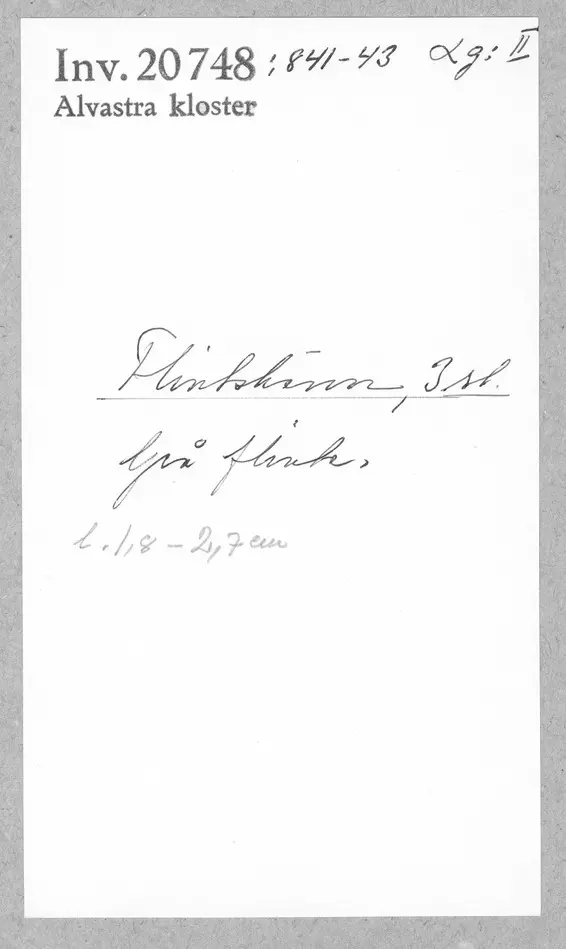 Inv. 20748:841-43 Lg: II
Alvastra kloster
Flintskärvor, 3 st.
Grå flinta.
l. 1,8 - 2,7 cm